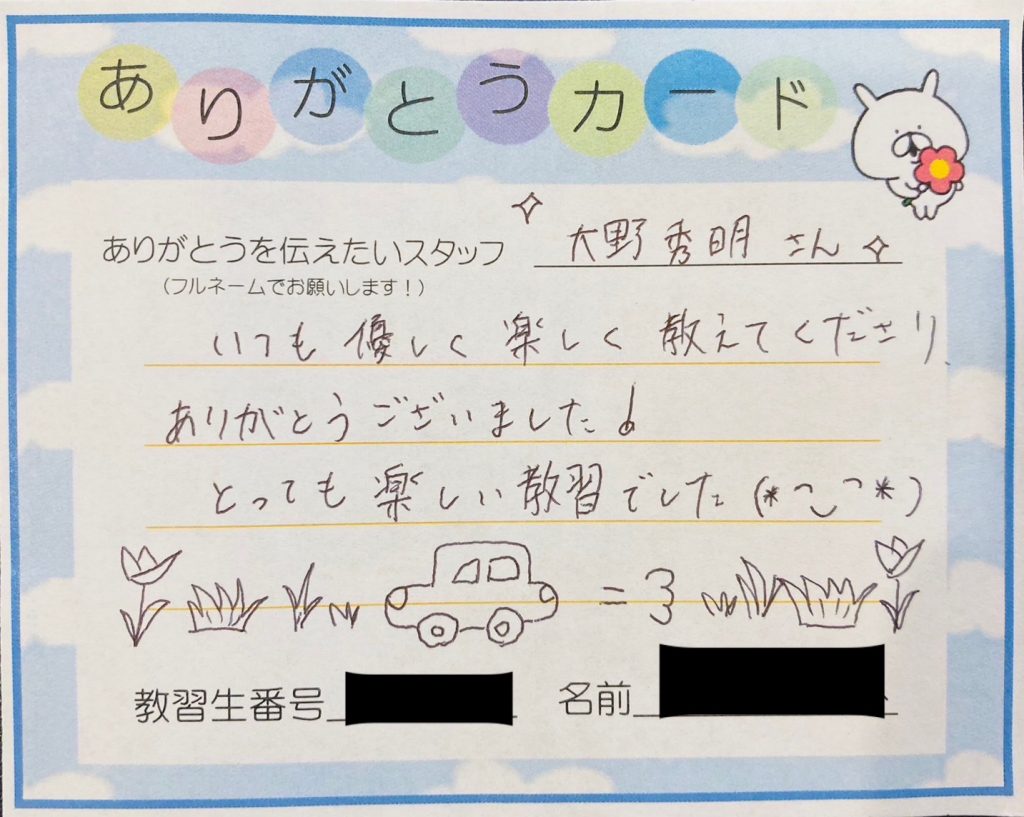 ありがとうカード
ありがとうを伝えたいスタッフ 大野秀明 さん
(フルネームでお願いします！)
いつも優しく楽しく教えてくださり、
ありがとうございました♪
とっても楽しい教習でした(*^‿^*)
=3
教習生番号
名前